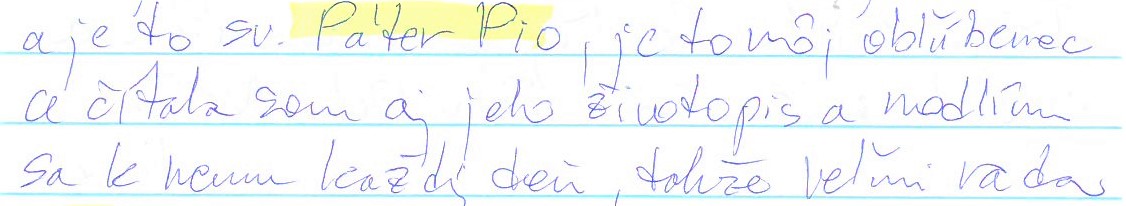 a je to sv. Páter Pio, je to môj obľúbenec
a čítala som aj jeho životopis a modlím
sa k nemu každý deň, takže veľmi rada